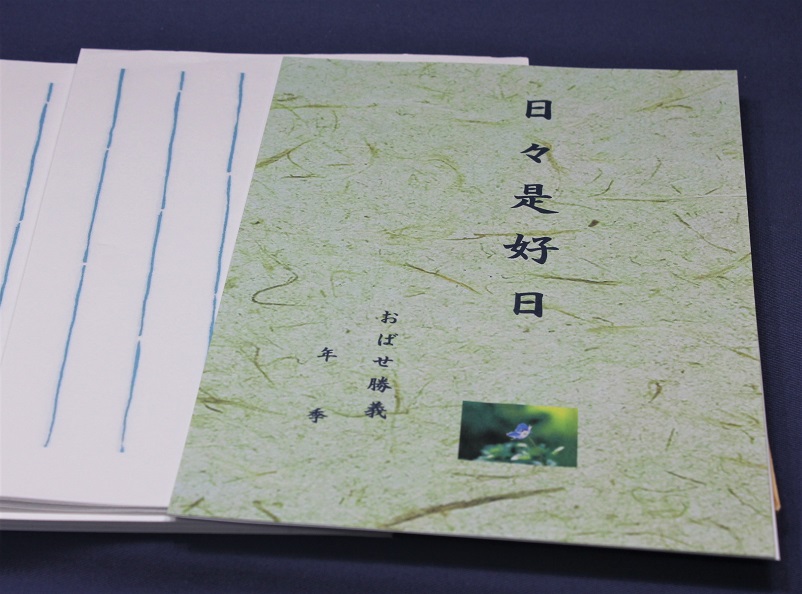 日々是好日
おばせ勝義
年季